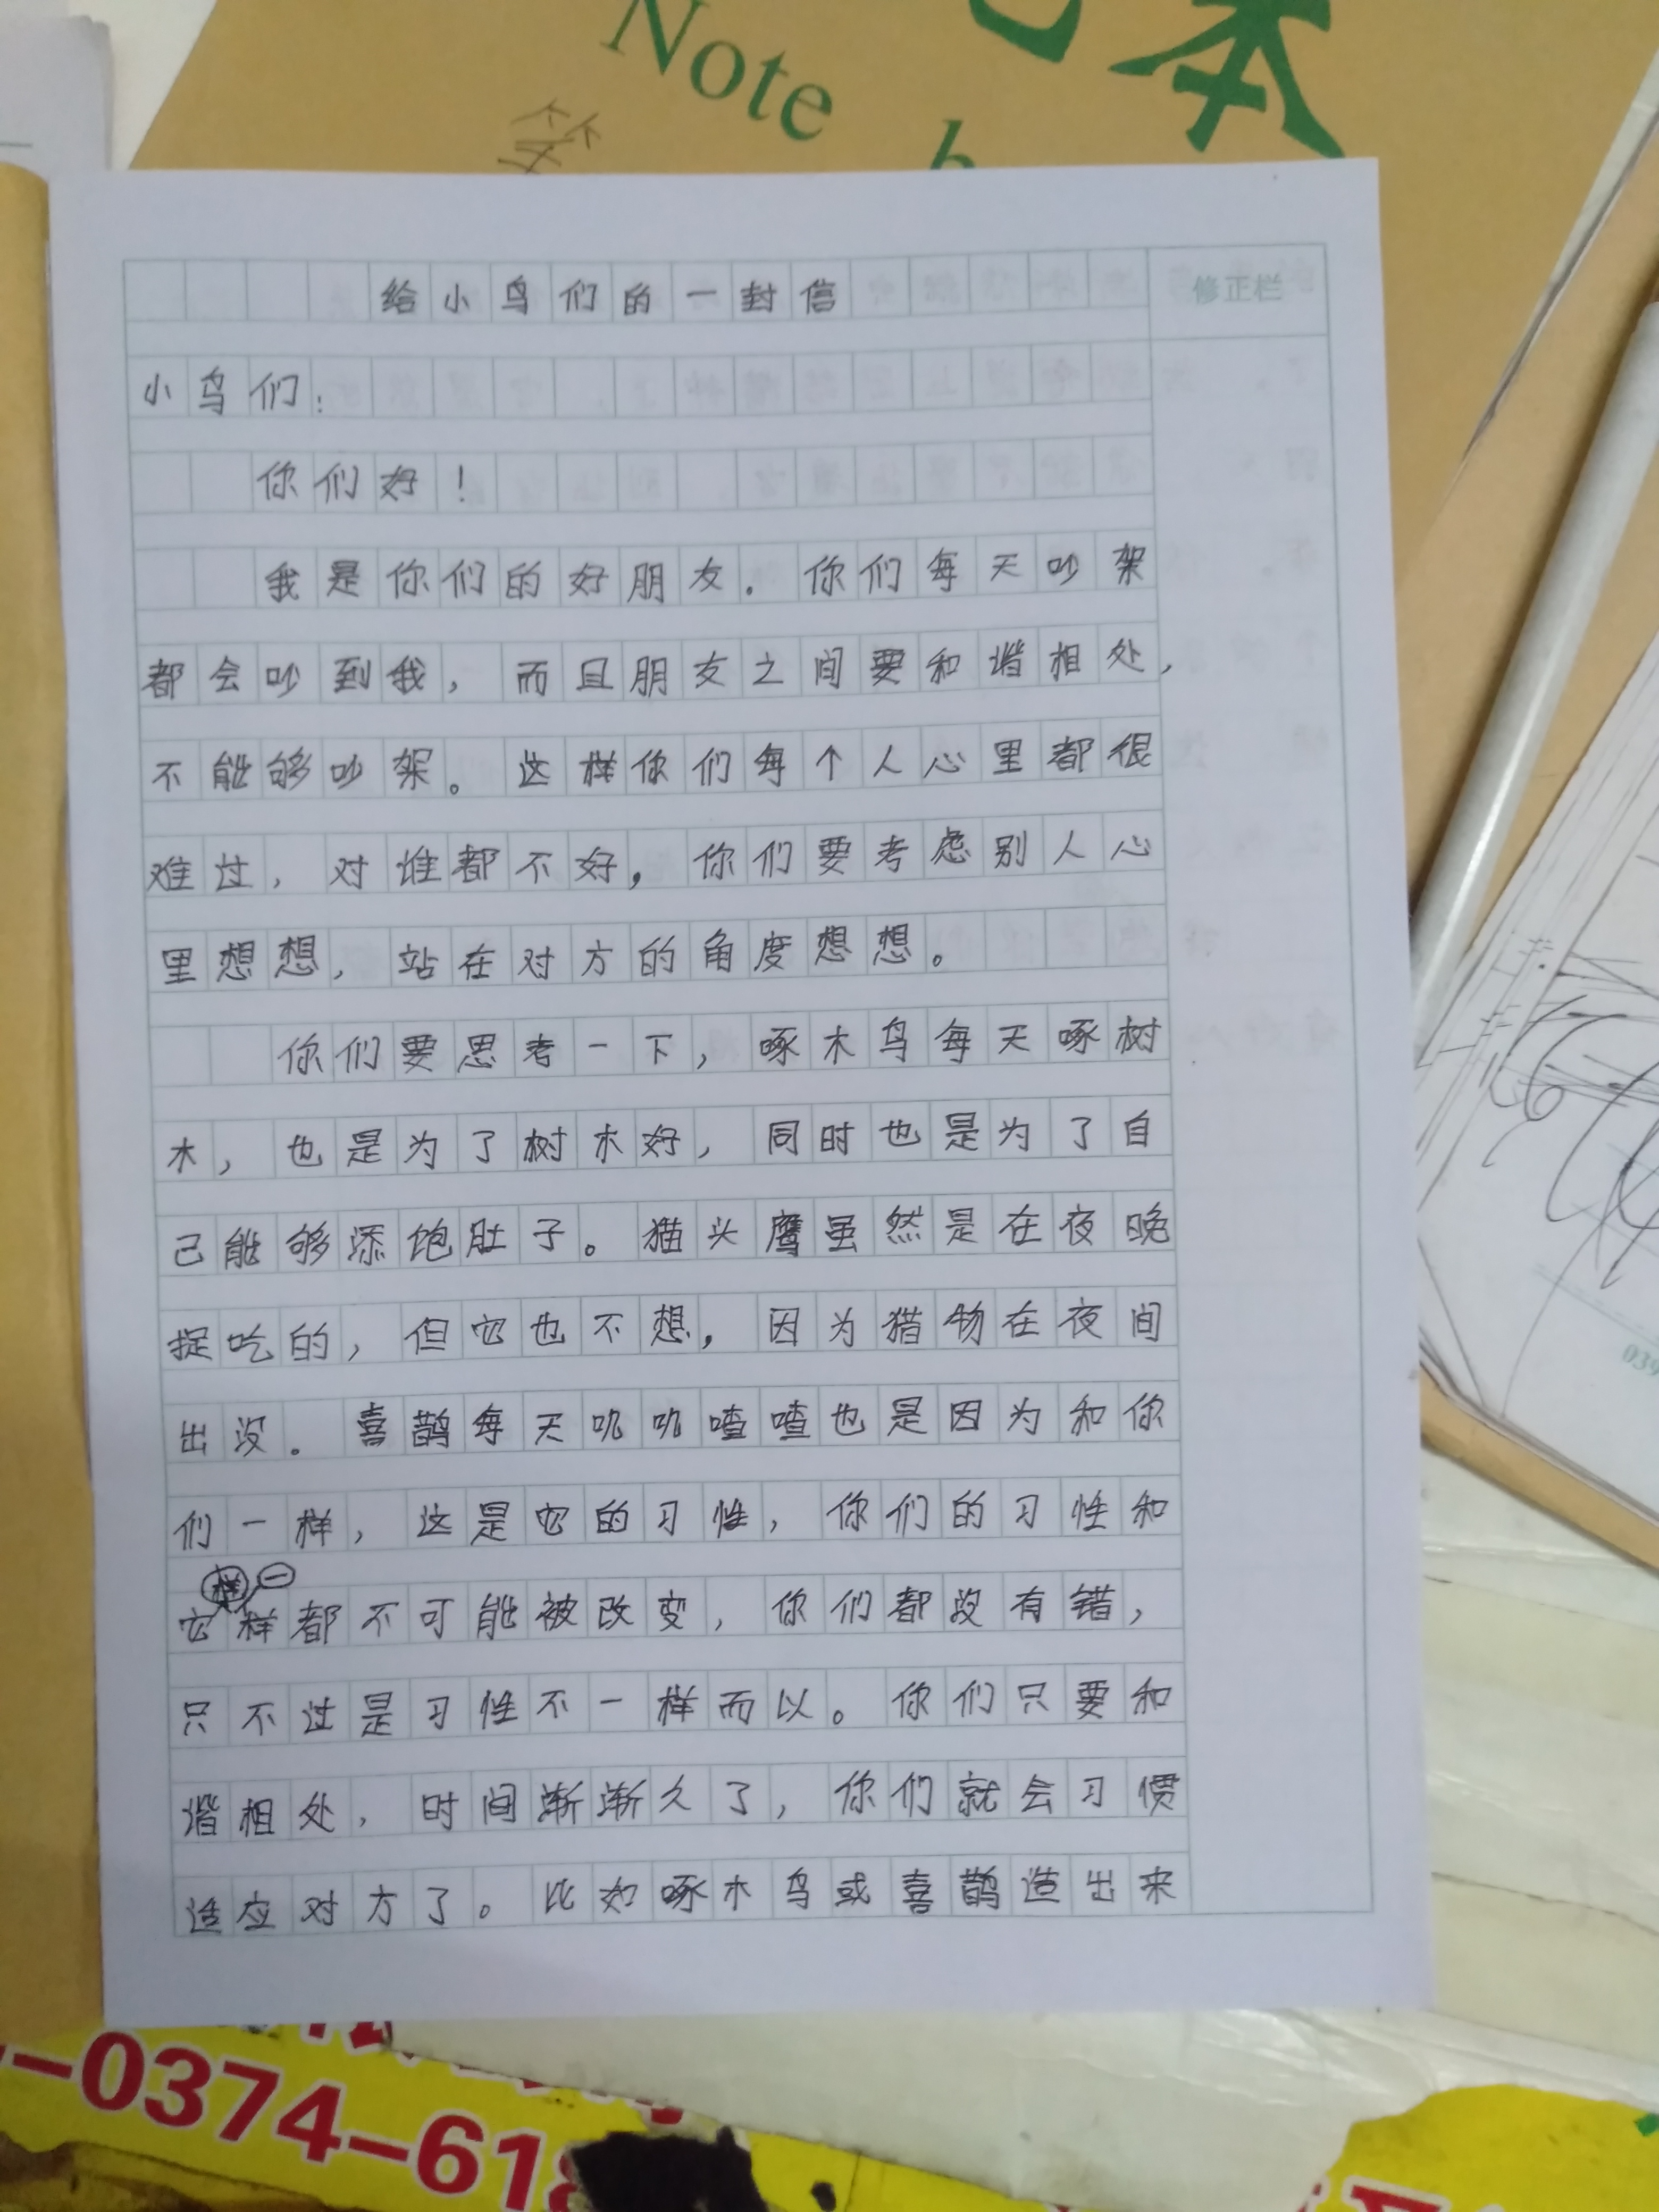 本
Note
给小鸟们的一封信
修正栏
小鸟们:
你们好!
我是你们的好朋友.你们每天吵架
都会吵到我,而且朋友之间要和谐相处,
不能够吵架。这样你们每个人心里都很
难过,对谁都不好,你们要考虑别人心
里想想,站在对方的角度想想。
你们要思考一下,啄木鸟每天啄树
木,也是为了树木好,同时也是为了自
己能够添饱肚子。猫头鹰虽然是在夜晚
捉吃的,但它也不想,因为猎物在夜间
出没。喜鹊每天叽叽喳喳也是因为和你
们一样,这是它的习性,你们的习性和
一
它样都不可能被改变,你们都没有错,
只不过是习性不一样而以。你们只要和
谐相处,时间渐渐久了,你们就会习惯
适应对方了。比如啄木鸟或喜鹊造出来
039
-0374-618